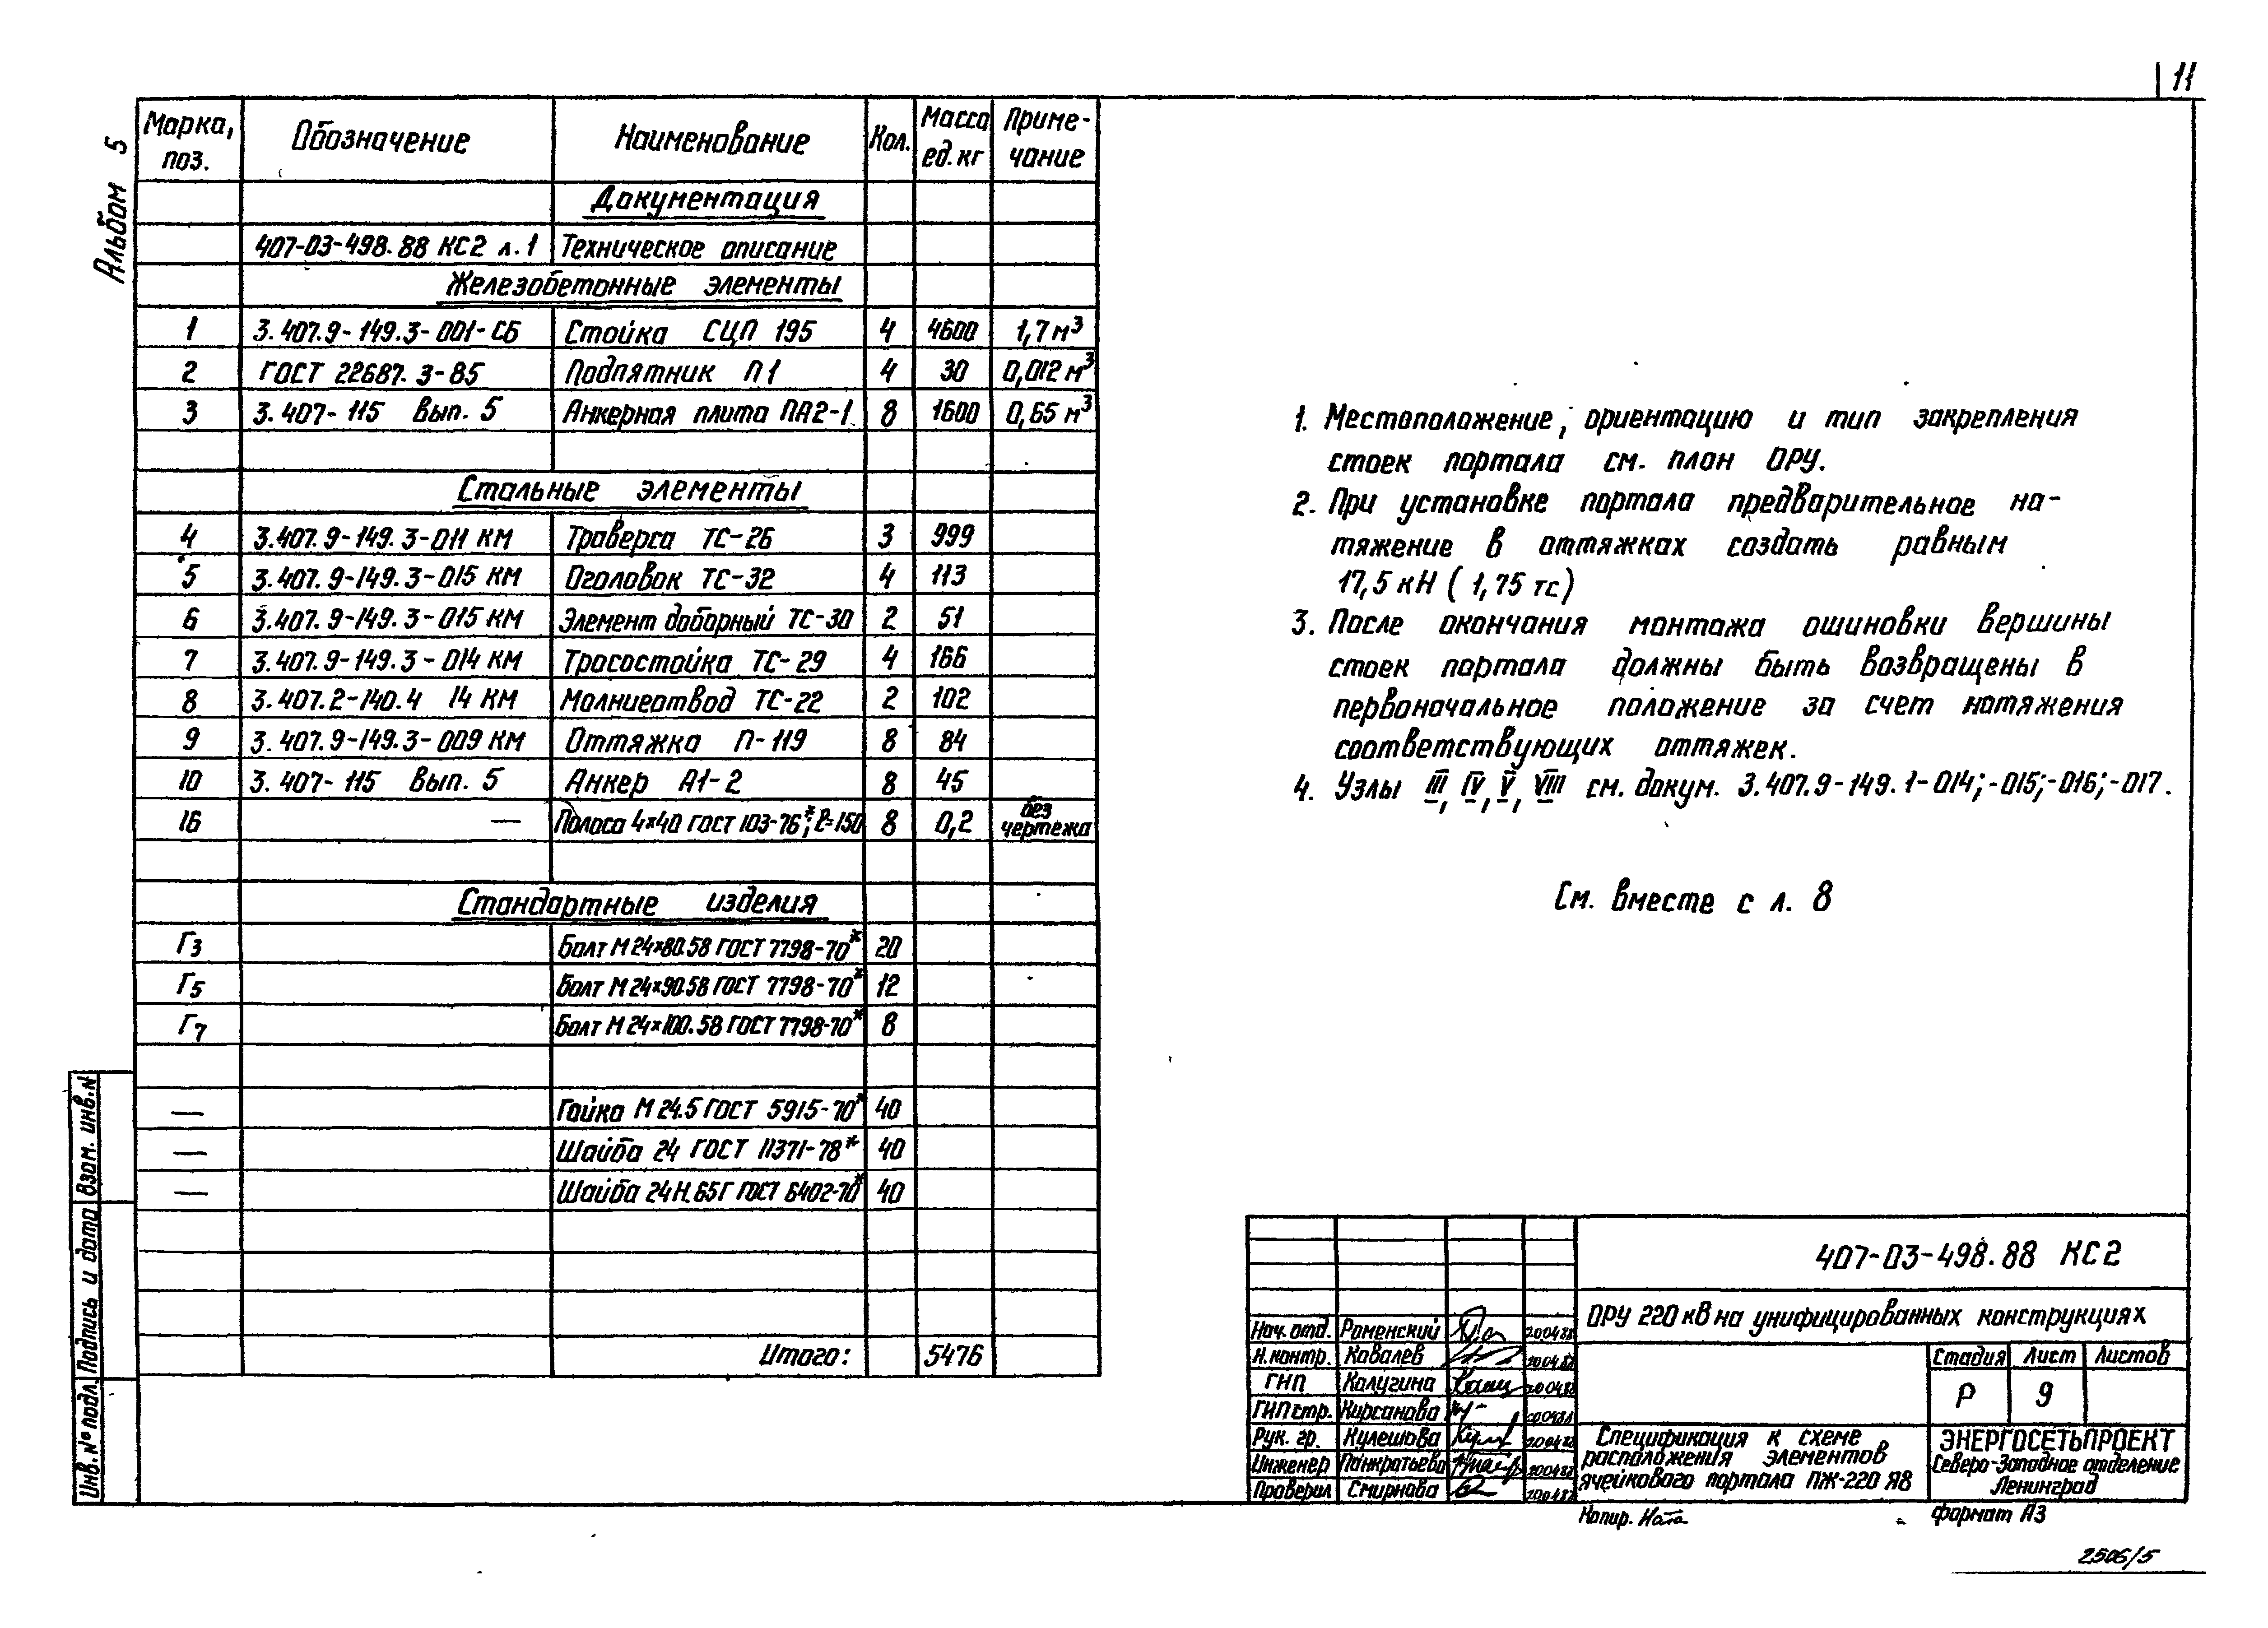 11
Альбом 5
Марка, поз. Обозначение Наименование Кол. Масса ед. кг Приме-чание
Документация
407-03-498.88 КС2 л.1 Техническое описание
Железобетонные элементы
1 3.407.9-149.3-001-СБ Стойка СЦП 195 4 4600 1,7 м³
2 ГОСТ 22687.3-85 Подпятник П1 4 30 0,012 м³
3 3.407-115 Вып. 5 Анкерная плита ПА2-1 8 1600 0,65 м³
Стальные элементы
4 3.407.9-149.3-011 КМ Траверса ТС-26 3 999
5 3.407.9-149.3-015 КМ Оголовок ТС-32 4 113
6 3.407.9-149.3-015 КМ Элемент доборный ТС-30 2 51
7 3.407.9-149.3-014 КМ Тросостойка ТС-29 4 166
8 3.407.2-140.4 14 КМ Молниеотвод ТС-22 2 102
9 3.407.9-149.3-009 КМ Оттяжка П-119 8 84
10 3.407-115 Вып. 5 Анкер А1-2 8 45
16 — Полоса 4×40 ГОСТ 103-76*; ℓ=150 8 0,2 без чертежа
Стандартные изделия
Г3 Болт М24×80.58 ГОСТ 7798-70* 20
Г5 Болт М24×90.58 ГОСТ 7798-70* 12
Г7 Болт М24×100.58 ГОСТ 7798-70* 8
— Гайка М24.5 ГОСТ 5915-70* 40
— Шайба 24 ГОСТ 11371-78* 40
— Шайба 24Н.65Г ГОСТ 6402-70* 40
Итого: 5476
1. Местоположение, ориентацию и тип закрепления
стоек портала см. план ОРУ.
2. При установке портала предварительное на-
тяжение в оттяжках создать равным
17,5 кН (1,75 тс)
3. После окончания монтажа ошиновки вершины
стоек портала должны быть возвращены в
первоначальное положение за счет натяжения
соответствующих оттяжек.
4. Узлы III, IV, V, VIII см. докум. 3.407.9-149.1-014;-015;-016;-017.
См. вместе с л. 8
Взам. инв. №
Подпись и дата
Инв. № подл.
407-03-498.88 КС2
ОРУ 220 кВ на унифицированных конструкциях
Нач. отд. Роменский 200488
Н. контр. Ковалев 200488
ГИП Калугина 200488
ГИП стр. Кирсанова 200488
Рук. гр. Кулешова 200488
Инженер Панкратьева 200488
Проверил Смирнова 200488
Стадия Лист Листов
Р 9
Спецификация к схеме
расположения элементов
ячейкового портала ПЖ-220 Я8
ЭНЕРГОСЕТЬПРОЕКТ
Северо-Западное отделение
Ленинград
Копир. Ната
формат А3
2506/5